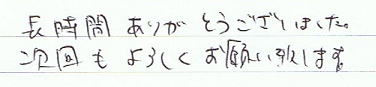 長時間ありがとうございました。
次回もよろしくお願い致します。